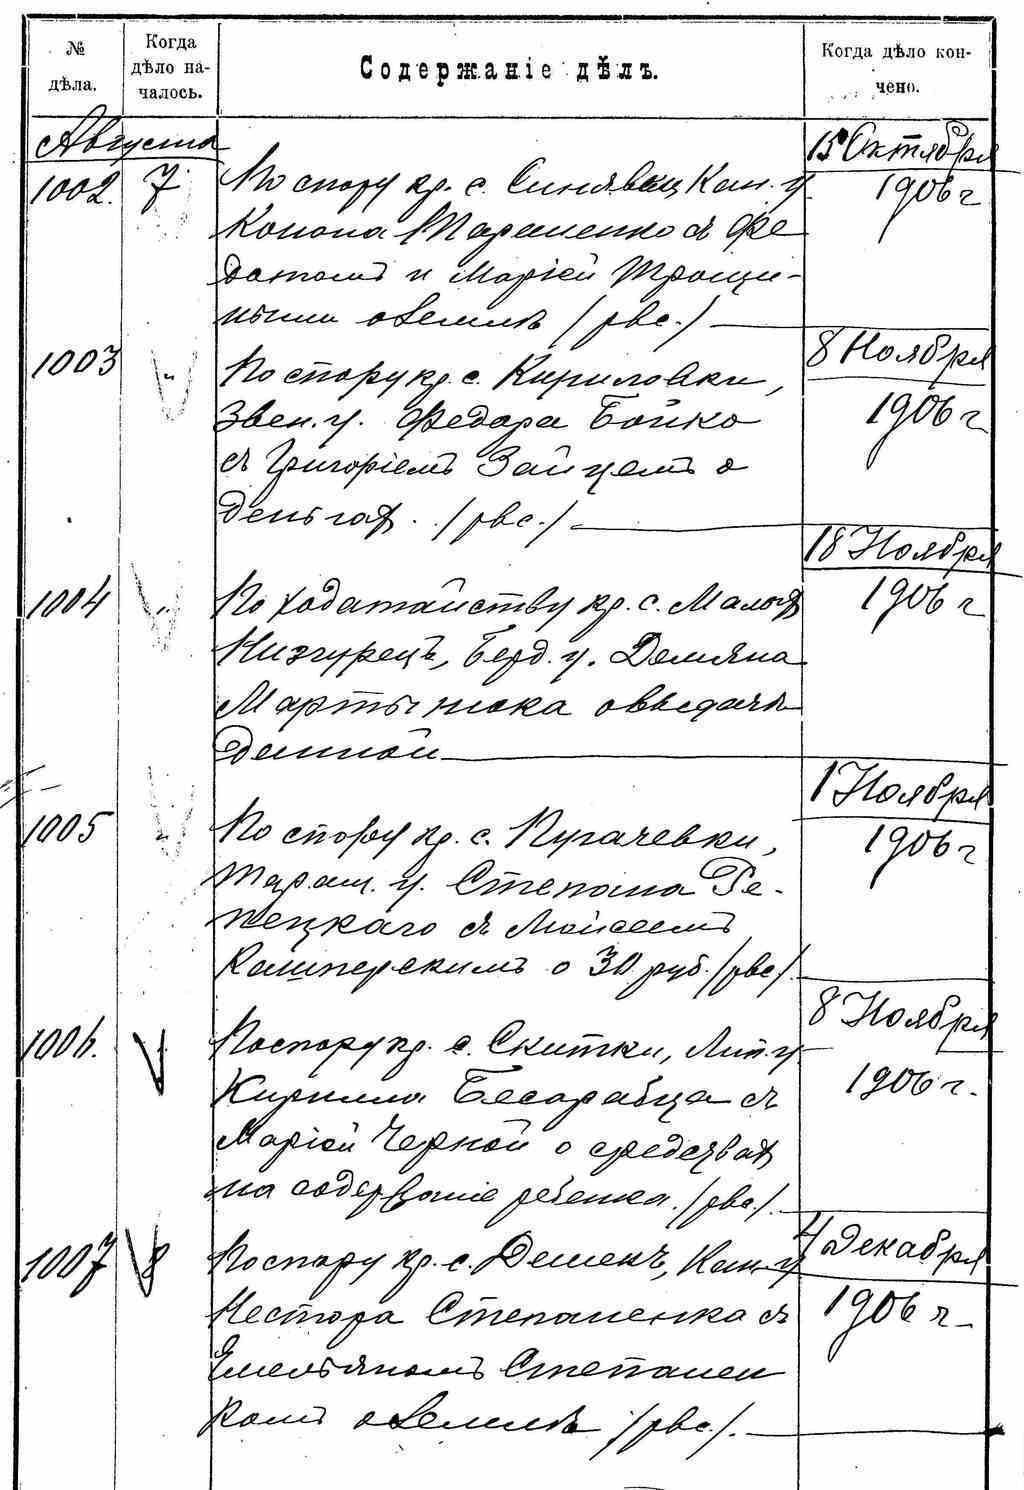 № дѣла.
Когда дѣло на-
чалось.
Содержаніе дѣлъ.
Когда дѣло кон-
чено.
Августа
1002. 7 По спору кр. с. Синявы, Кан. у.
Конона Тараненко съ Фе
дотомъ и Маріей Трощи-
ными о землѣ /рвс./
15 Октября
1906 г
1003 " По спору кр. с. Кириловки,
Звен. у. Федора Бойко
съ Григоріемъ Зайцемъ о
деньгах. /рвс./
8 Ноября
1906 г
1004 " По ходатайству кр. с. Малых
Низгурецъ, Берд. у. Демьяна
Мартынюка о выдачѣ
данной
18 Ноября
1906 г
1005 " По спору кр. с. Пугачевки,
Тараш. у. Степана Ре-
пецкаго съ Моисеемъ
Кашперскимъ о 30 руб. /рвс/.
1 Ноября
1906 г
1006. По спору кр. с. Скитки, Лип. у
Кирилла Бесарабца съ
Маріей Черной о средствах
на содержаніе ребенка. /рвс./.
8 Ноября
1906 г.
1007 8 По спору кр. с. Дешекъ, Кан. у
Нестора Степаненка съ
Емельяномъ Степанен
комъ о землѣ /рвс./.
4 Декабря
1906 г.